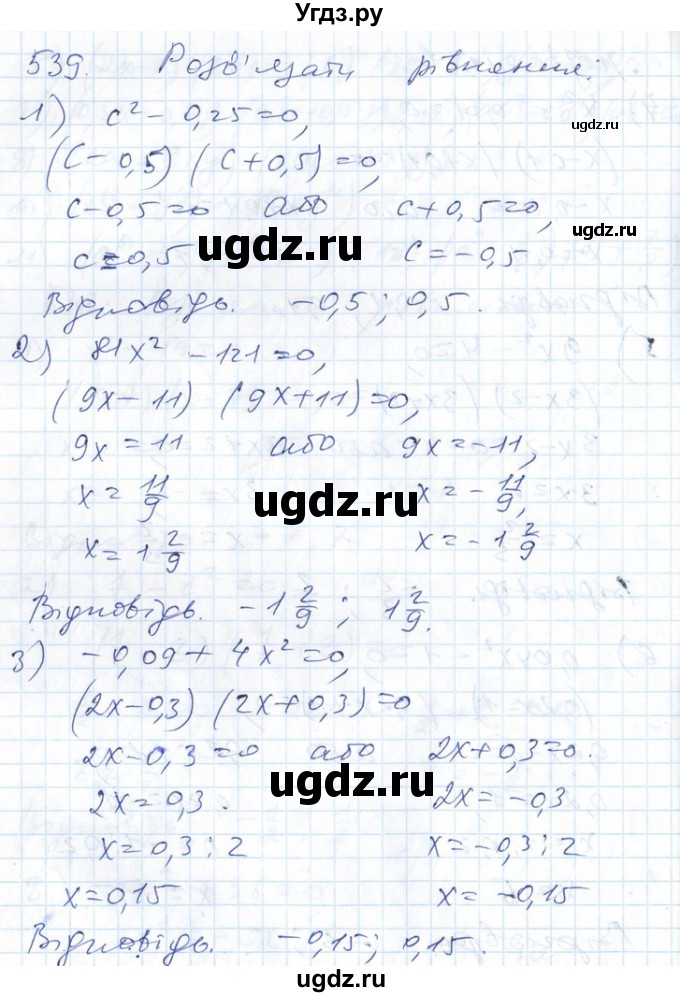 Угдз.ру
539. Розв'язати рівняння:
1) c² - 0,25 = 0,
ugdz.ru
(c - 0,5) (c + 0,5) = 0,
c - 0,5 = 0 або c + 0,5 = 0,
ugdz.ru
ugdz.ru
c = 0,5 c = -0,5.
Відповідь. -0,5; 0,5.
2) 81x² - 121 = 0,
(9x - 11) (9x + 11) = 0,
9x = 11 або 9x = -11,
x = 11/9 x = -11/9,
ugdz.ru
ugdz.ru
x = 1 2/9 x = -1 2/9
Відповідь. -1 2/9; 1 2/9.
3) -0,09 + 4x² = 0,
(2x - 0,3) (2x + 0,3) = 0
ugdz.ru
2x - 0,3 = 0 або 2x + 0,3 = 0.
ugdz.ru
2x = 0,3. 2x = -0,3
x = 0,3 : 2 x = -0,3 : 2
x = 0,15 x = -0,15
Відповідь. -0,15; 0,15.
ugdz.ru